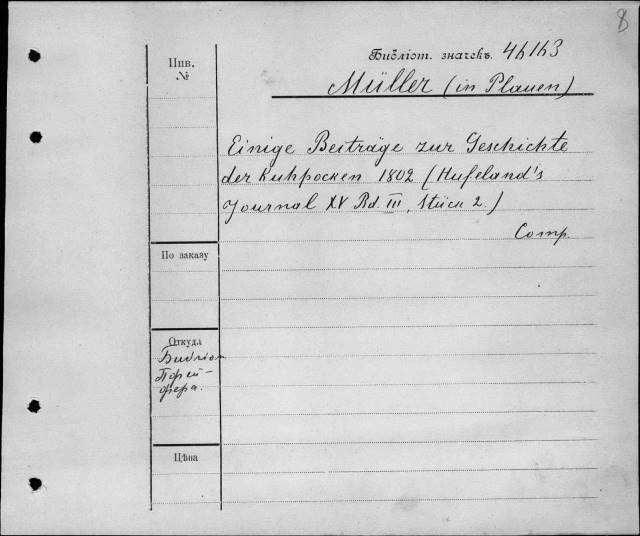 8
Библіот. значекъ. 46163
Инв.
№
Müller (in Plauen)
Einige Beiträge zur Geschichte
der Kuhpocken 1802 (Hufeland's
Journal XV Bd III, Stück 2.)
Comp.
По заказу
Откуда
Библіот
Пфей-
фера.
Цѣна